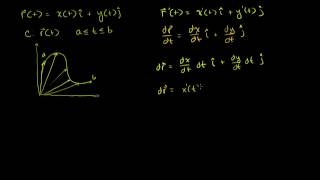 r⃗(t) = x(t) î + y(t) ĵ
C: r⃗(t) a ≤ t ≤ b
a
b
r⃗'(t) = x'(t) î + y'(t) ĵ
dr⃗/dt = dx/dt î + dy/dt ĵ
dr⃗ = dx/dt dt î + dy/dt dt ĵ
dr⃗ = x'(t)